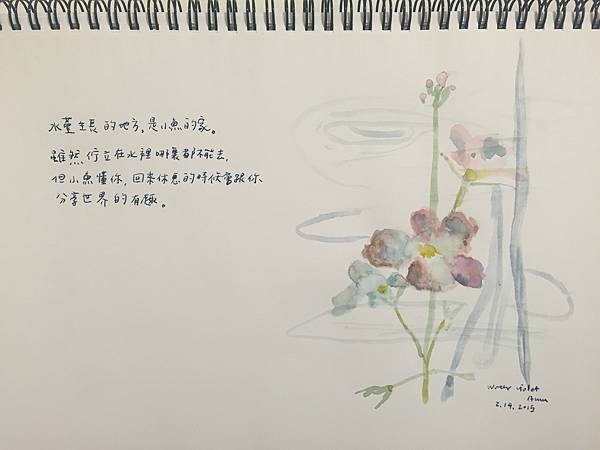 水堇生長的地方，是小魚的家。
雖然佇立在水裡哪裏都不能去，
但小魚懂你，回來休息的時候會跟你
分享世界的有趣。
Water violet
Anna
2.14.2015